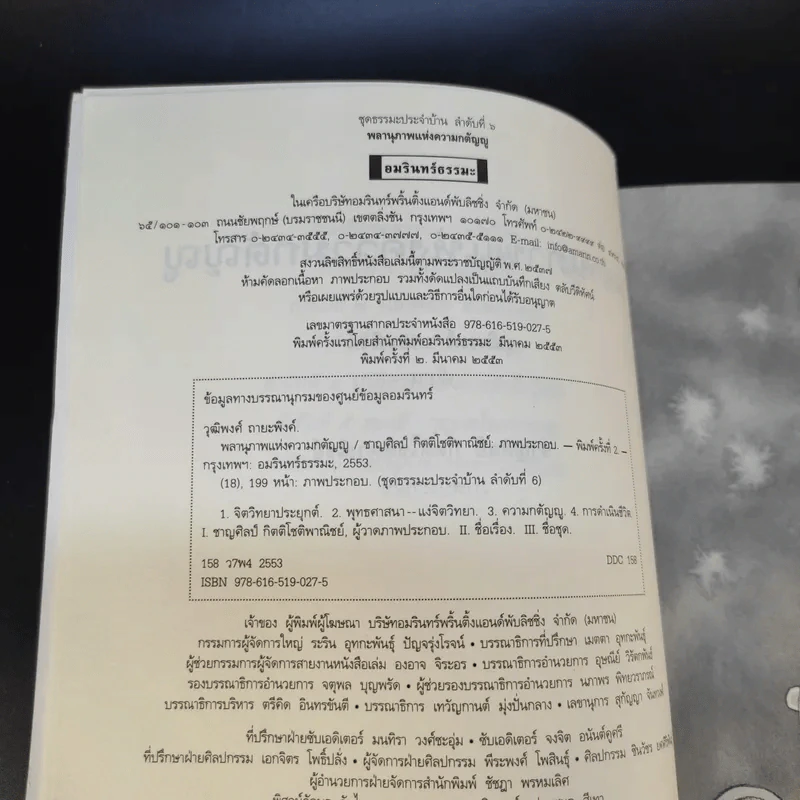 ชุดธรรมะประจำบ้าน ลำดับที่ ๖
พลานุภาพแห่งความกตัญญู
อมรินทร์ธรรมะ
ในเครือบริษัทอมรินทร์พริ้นติ้งแอนด์พับลิชชิ่ง จำกัด (มหาชน)
๖๕/๑๐๑-๑๐๓ ถนนชัยพฤกษ์ (บรมราชชนนี) เขตตลิ่งชัน กรุงเทพฯ ๑๐๑๗๐ โทรศัพท์ ๐-๒๔๒๒-๙๙๙๙
โทรสาร ๐-๒๔๓๔-๓๕๕๕, ๐-๒๔๓๔-๓๗๗๗, ๐-๒๔๓๕-๕๑๑๑ E-mail: info@amarin.co.th
สงวนลิขสิทธิ์หนังสือเล่มนี้ตามพระราชบัญญัติ พ.ศ. ๒๕๓๗
ห้ามคัดลอกเนื้อหา ภาพประกอบ รวมทั้งดัดแปลงเป็นแถบบันทึกเสียง ตลับวีดิทัศน์
หรือเผยแพร่ด้วยรูปแบบและวิธีการอื่นใดก่อนได้รับอนุญาต
เลขมาตรฐานสากลประจำหนังสือ 978-616-519-027-5
พิมพ์ครั้งแรกโดยสำนักพิมพ์อมรินทร์ธรรมะ มีนาคม ๒๕๕๓
พิมพ์ครั้งที่ ๒. มีนาคม ๒๕๕๓
ข้อมูลทางบรรณานุกรมของศูนย์ข้อมูลอมรินทร์
วุฒิพงศ์ ถายะพิงค์.
พลานุภาพแห่งความกตัญญู / ชาญศิลป์ กิตติโชติพาณิชย์: ภาพประกอบ. — พิมพ์ครั้งที่ 2. –
กรุงเทพฯ: อมรินทร์ธรรมะ, 2553.
(18), 199 หน้า: ภาพประกอบ. (ชุดธรรมะประจำบ้าน ลำดับที่ 6)
1. จิตวิทยาประยุกต์. 2. พุทธศาสนา--แง่จิตวิทยา. 3. ความกตัญญู. 4. การดำเนินชีวิต
I. ชาญศิลป์ กิตติโชติพาณิชย์, ผู้วาดภาพประกอบ. II. ชื่อเรื่อง. III. ชื่อชุด.
158 ว7พ4 2553 DDC 158
ISBN 978-616-519-027-5
เจ้าของ ผู้พิมพ์ผู้โฆษณา บริษัทอมรินทร์พริ้นติ้งแอนด์พับลิชชิ่ง จำกัด (มหาชน)
กรรมการผู้จัดการใหญ่ ระริน อุทกะพันธุ์ ปัญจรุ่งโรจน์ • บรรณาธิการที่ปรึกษา เมตตา อุทกะพันธุ์
ผู้ช่วยกรรมการผู้จัดการสายงานหนังสือเล่ม องอาจ จิระอร • บรรณาธิการอำนวยการ อุษณีย์ วิรัตกพันธ์
รองบรรณาธิการอำนวยการ จตุพล บุญพรัด • ผู้ช่วยรองบรรณาธิการอำนวยการ นภาพร พิทยวราภรณ์
บรรณาธิการบริหาร ตรีคิด อินทรขันตี • บรรณาธิการ เทวัญกานต์ มุ่งปั่นกลาง • เลขานุการ สุกัญญา จันทวงศ์
ที่ปรึกษาฝ่ายซับเอดิเตอร์ มนทิรา วงศ์ชะอุ่ม • ซับเอดิเตอร์ จงจิต อนันต์คูศรี
ที่ปรึกษาฝ่ายศิลปกรรม เอกจิตร โพธิ์ปลั่ง • ผู้จัดการฝ่ายศิลปกรรม พีระพงศ์ โพสินธุ์ • ศิลปกรรม ชินวัชร
ผู้อำนวยการฝ่ายจัดการสำนักพิมพ์ ชัชฎา พรหมเลิศ